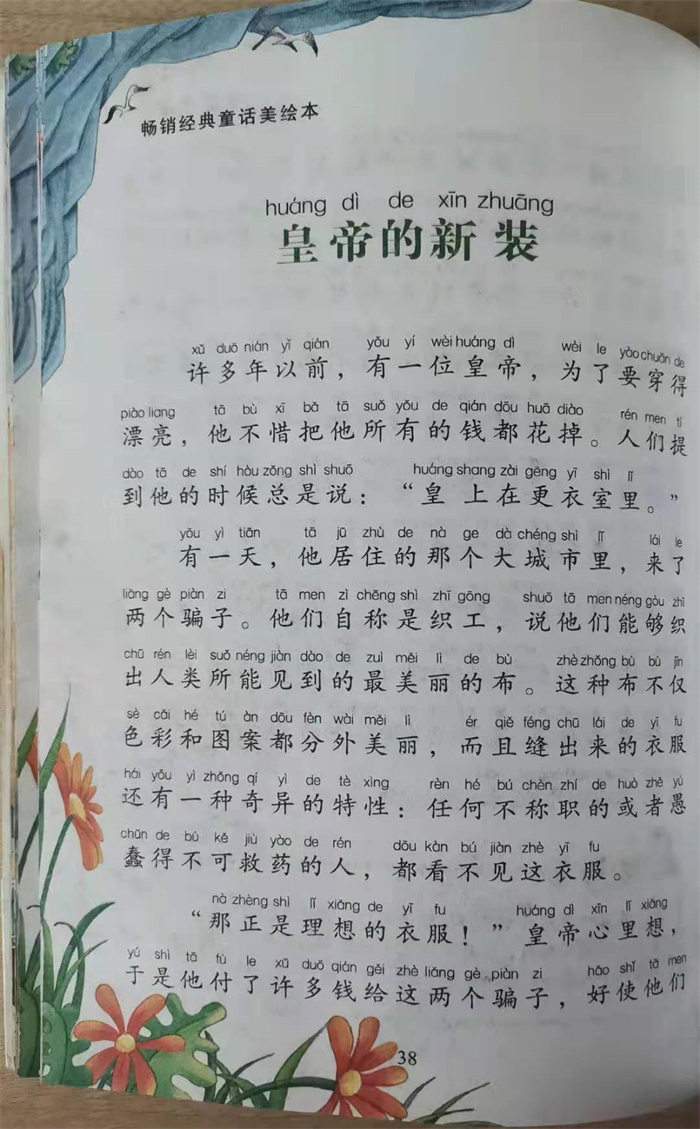 畅销经典童话美绘本
huáng dì de xīn zhuāng
皇帝的新装
xǔ duō nián yǐ qián yǒu yí wèi huáng dì wèi le yào chuān de
许多年以前，有一位皇帝，为了要穿得
piào liang tā bù xī bǎ tā suǒ yǒu de qián dōu huā diào rén men tí
漂亮，他不惜把他所有的钱都花掉。人们提
dào tā de shí hòu zǒng shì shuō huáng shang zài gēng yī shì lǐ
到他的时候总是说：“皇上在更衣室里。”
yǒu yì tiān tā jū zhù de nà ge dà chéng shì lǐ lái le
有一天，他居住的那个大城市里，来了
liǎng gè piàn zi tā men zì chēng shì zhī gōng shuō tā men néng gòu zhī
两个骗子。他们自称是织工，说他们能够织
chū rén lèi suǒ néng jiàn dào de zuì měi lì de bù zhè zhǒng bù bù jǐn
出人类所能见到的最美丽的布。这种布不仅
sè cǎi hé tú àn dōu fèn wài měi lì ér qiě féng chū lái de yī fu
色彩和图案都分外美丽，而且缝出来的衣服
hái yǒu yì zhǒng qí yì de tè xìng rèn hé bú chèn zhí de huò zhě yú
还有一种奇异的特性：任何不称职的或者愚
chǔn de bù kě jiù yào de rén dōu kàn bú jiàn zhè yī fu
蠢得不可救药的人，都看不见这衣服。
nà zhèng shì lǐ xiǎng de yī fu huáng dì xīn lǐ xiǎng
“那正是理想的衣服！”皇帝心里想，
yú shì tā fù le xǔ duō qián gěi zhè liǎng gè piàn zi hǎo shǐ tā men
于是他付了许多钱给这两个骗子，好使他们
38